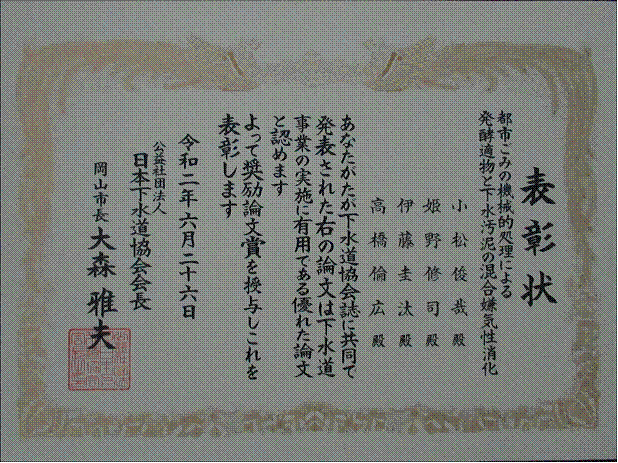 表彰状
都市ごみの機械的処理による
発酵適物と下水汚泥の混合嫌気性消化
小松俊哉殿
姫野修司殿
伊藤圭汰殿
高橋倫広殿
あなたがたが下水道協会誌に共同で
発表された右の論文は下水道
事業の実施に有用である優れた論文
と認めます
よって奨励論文賞を授与しこれを
表彰します
令和二年六月二十六日
公益社団法人
日本下水道協会会長
岡山市長 大森雅夫